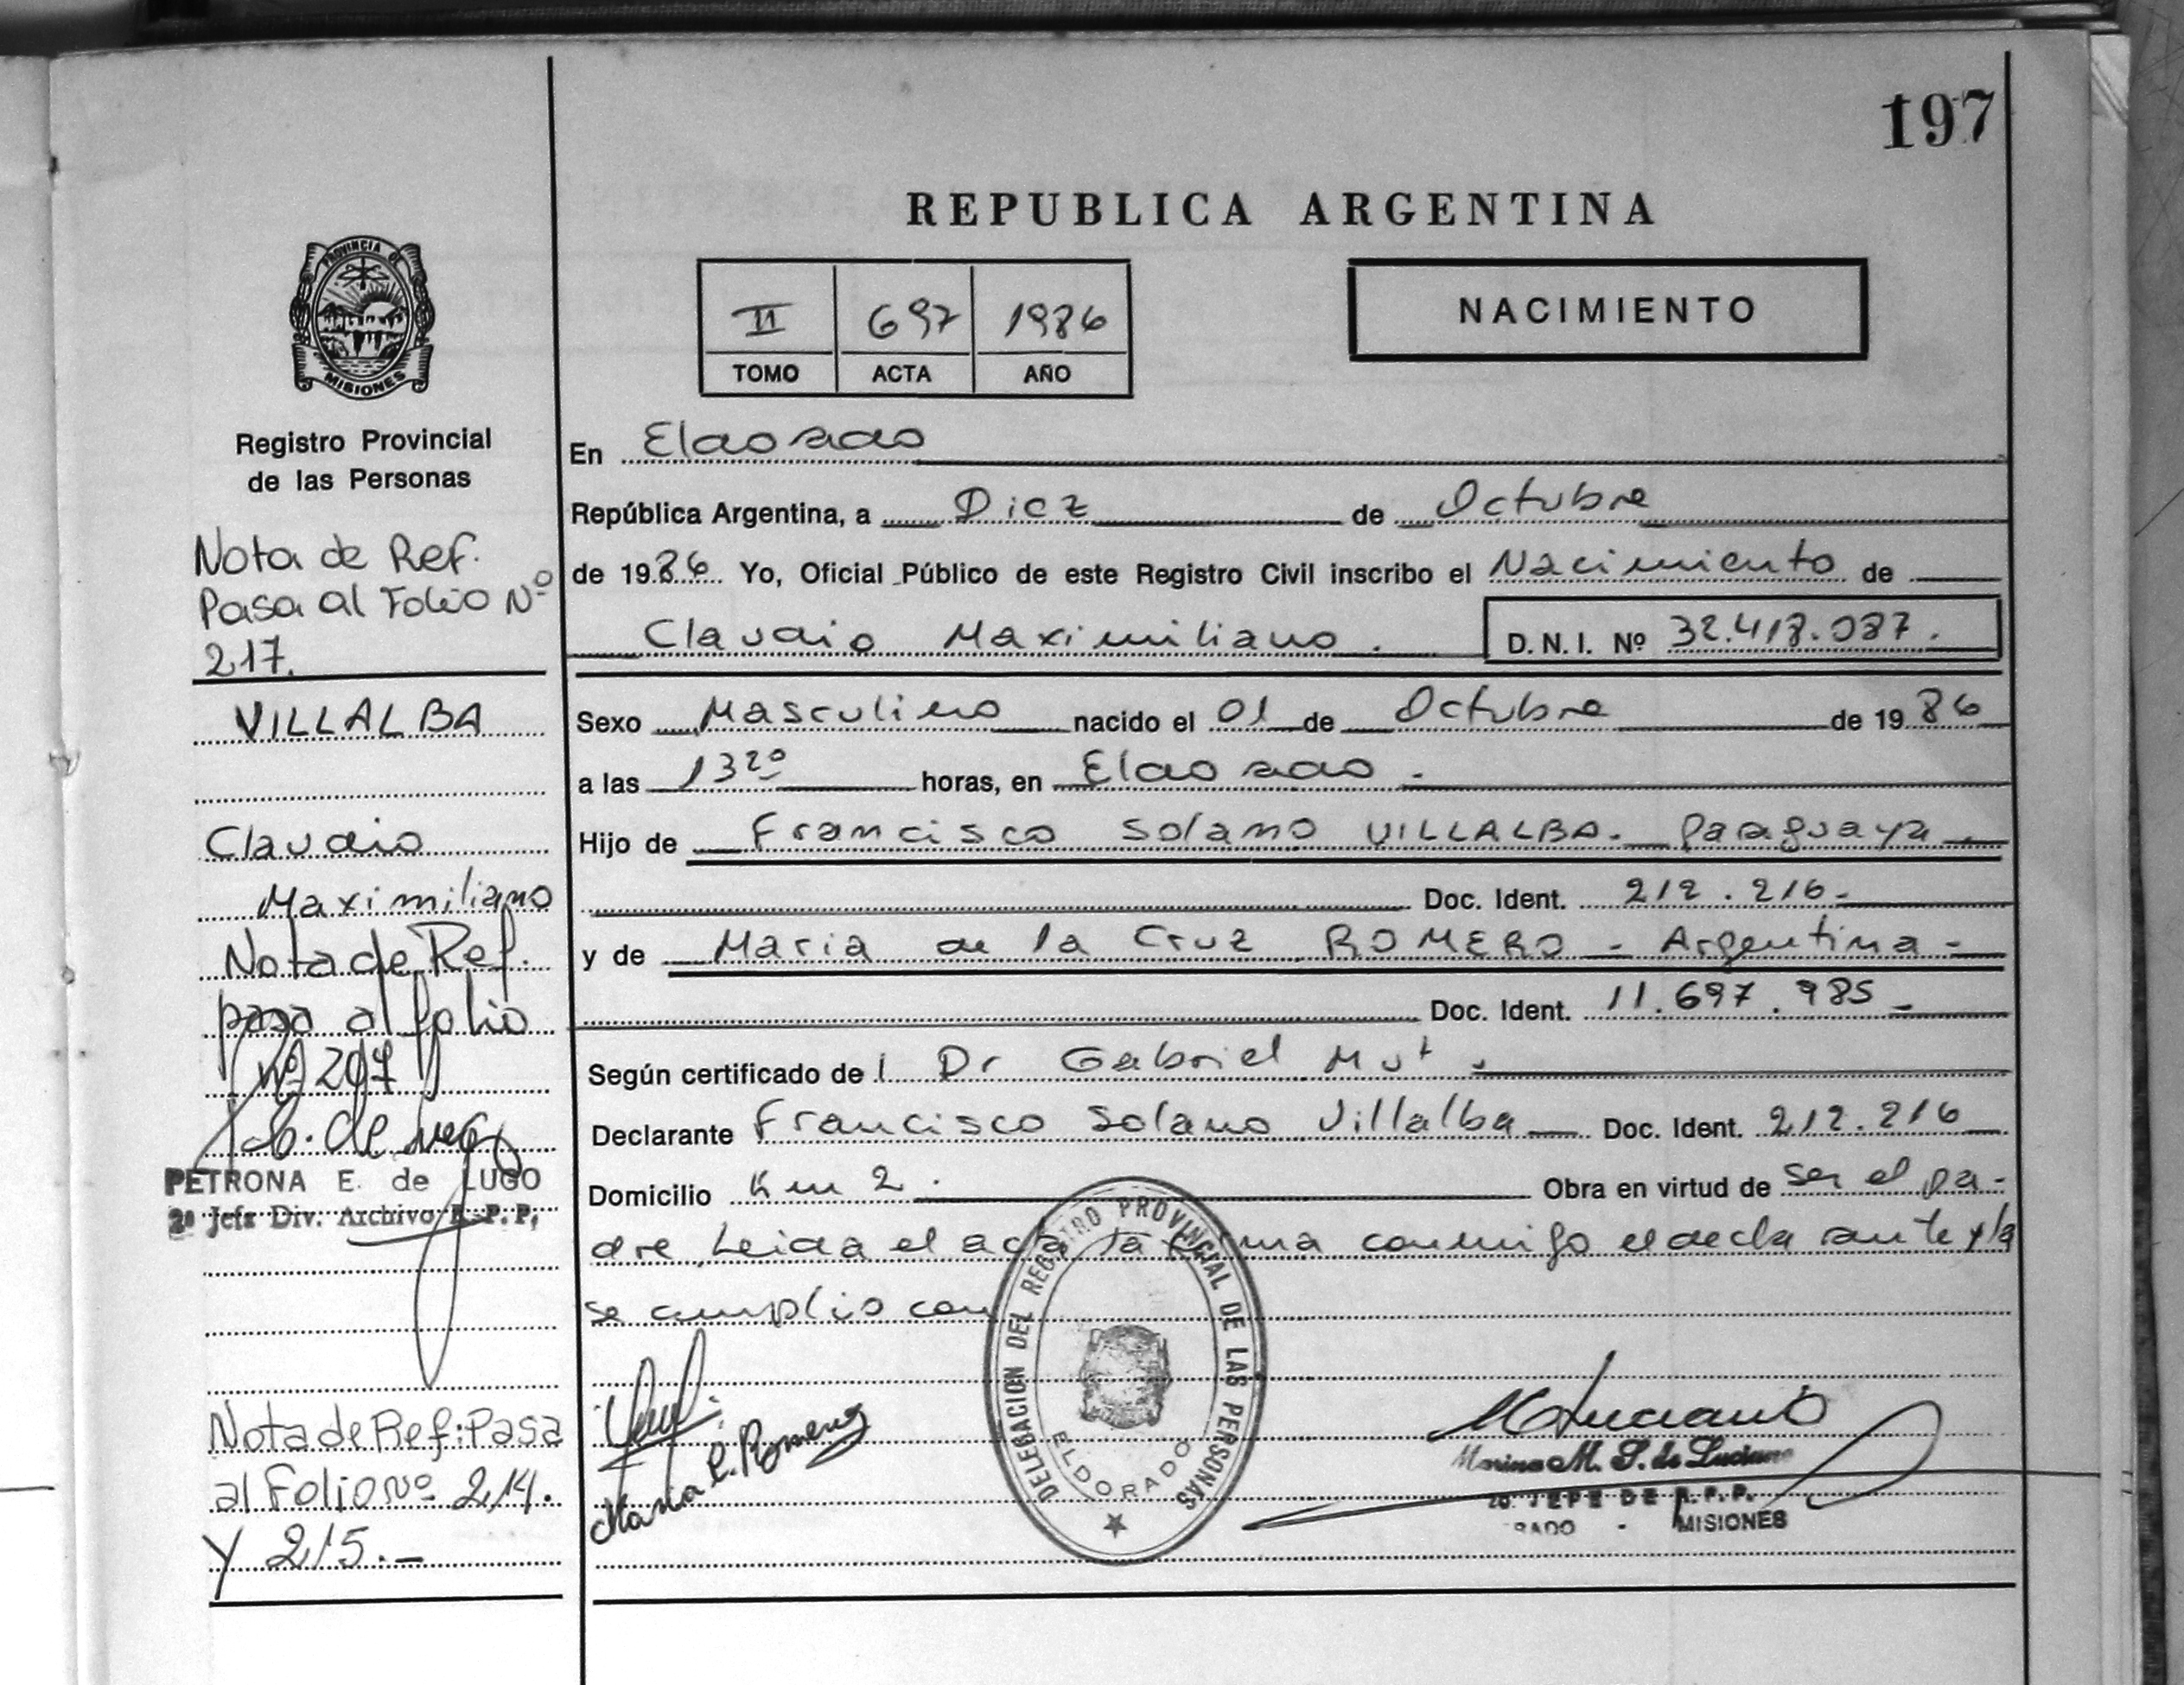 197
REPUBLICA ARGENTINA
PROVINCIA DE
MISIONES
II 697 1986
TOMO ACTA AÑO
NACIMIENTO
Registro Provincial
de las Personas
Nota de Ref.
Pasa al Folio Nº
217.
VILLALBA
Claudio
Maximiliano
Nota de Ref.
pasa al folio
Nº 207
PETRONA E. de LUGO
2º Jefa Div. Archivo R.P.P.
Nota de Ref: Pasa
al Folio Nº 214.
Y 215.-
En Eldorado
República Argentina, a Diez de Octubre
de 1986 Yo, Oficial Público de este Registro Civil inscribo el Nacimiento de
Claudio Maximiliano. D. N. I. Nº 32.418.087.
Sexo Masculino nacido el 01 de Octubre de 1986
a las 13 20 horas, en Eldorado.
Hijo de Francisco Solano VILLALBA. Paraguaya
Doc. Ident. 212.216-
y de Maria de la Cruz ROMERO - Argentina -
Doc. Ident. 11.697.985
Según certificado del Dr Gabriel Mut
Declarante Francisco Solano Villalba Doc. Ident. 212.216
Domicilio Km 2. Obra en virtud de ser el pa-
dre Leida el acta la firma conmigo el declarante y la
se cumplio con
Maria C. Romero
DELEGACION DEL REGISTRO PROVINCIAL DE LAS PERSONAS
ELDORADO
Marina M. S. de Luciano
2º JEFE DE R.P.P.
MISIONES